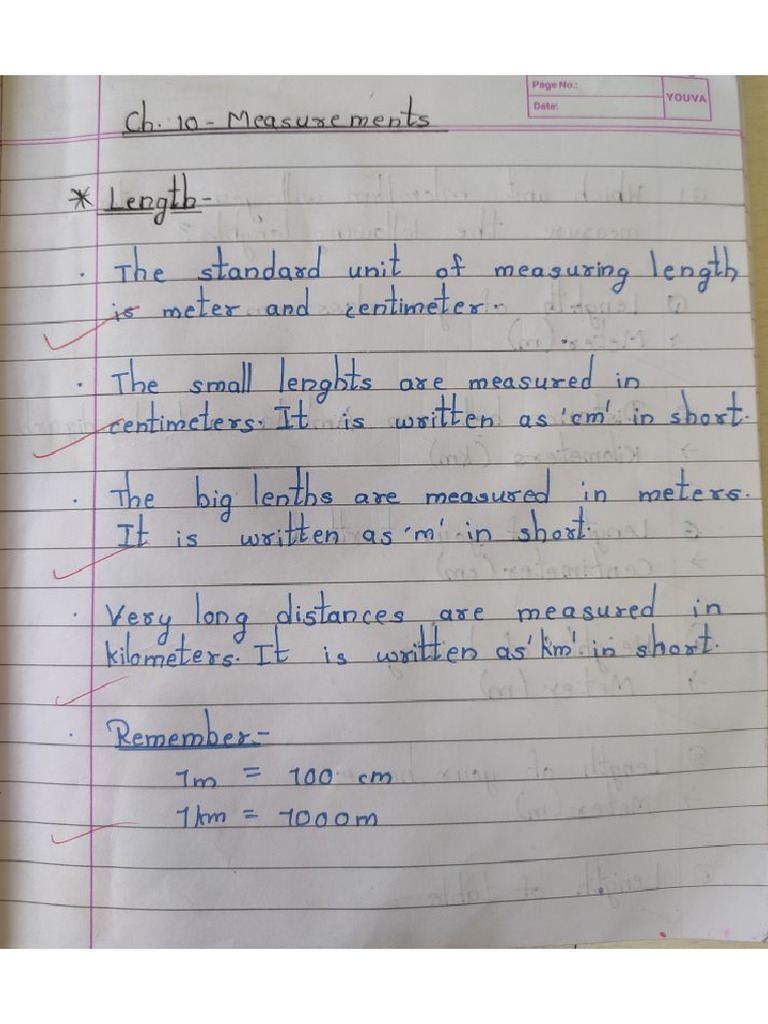 Page No.:
Date:
YOUVA
Ch. 10 - Measurements
* Length-
· The standard unit of measuring length
is meter and centimeter.
· The small lenghts are measured in
centimeters. It is written as 'cm' in short.
· The big lenths are measured in meters.
It is written as 'm' in short.
· Very long distances are measured in
kilometers. It is written as 'km' in short.
· Remember:-
1m = 100 cm
1km = 1000m